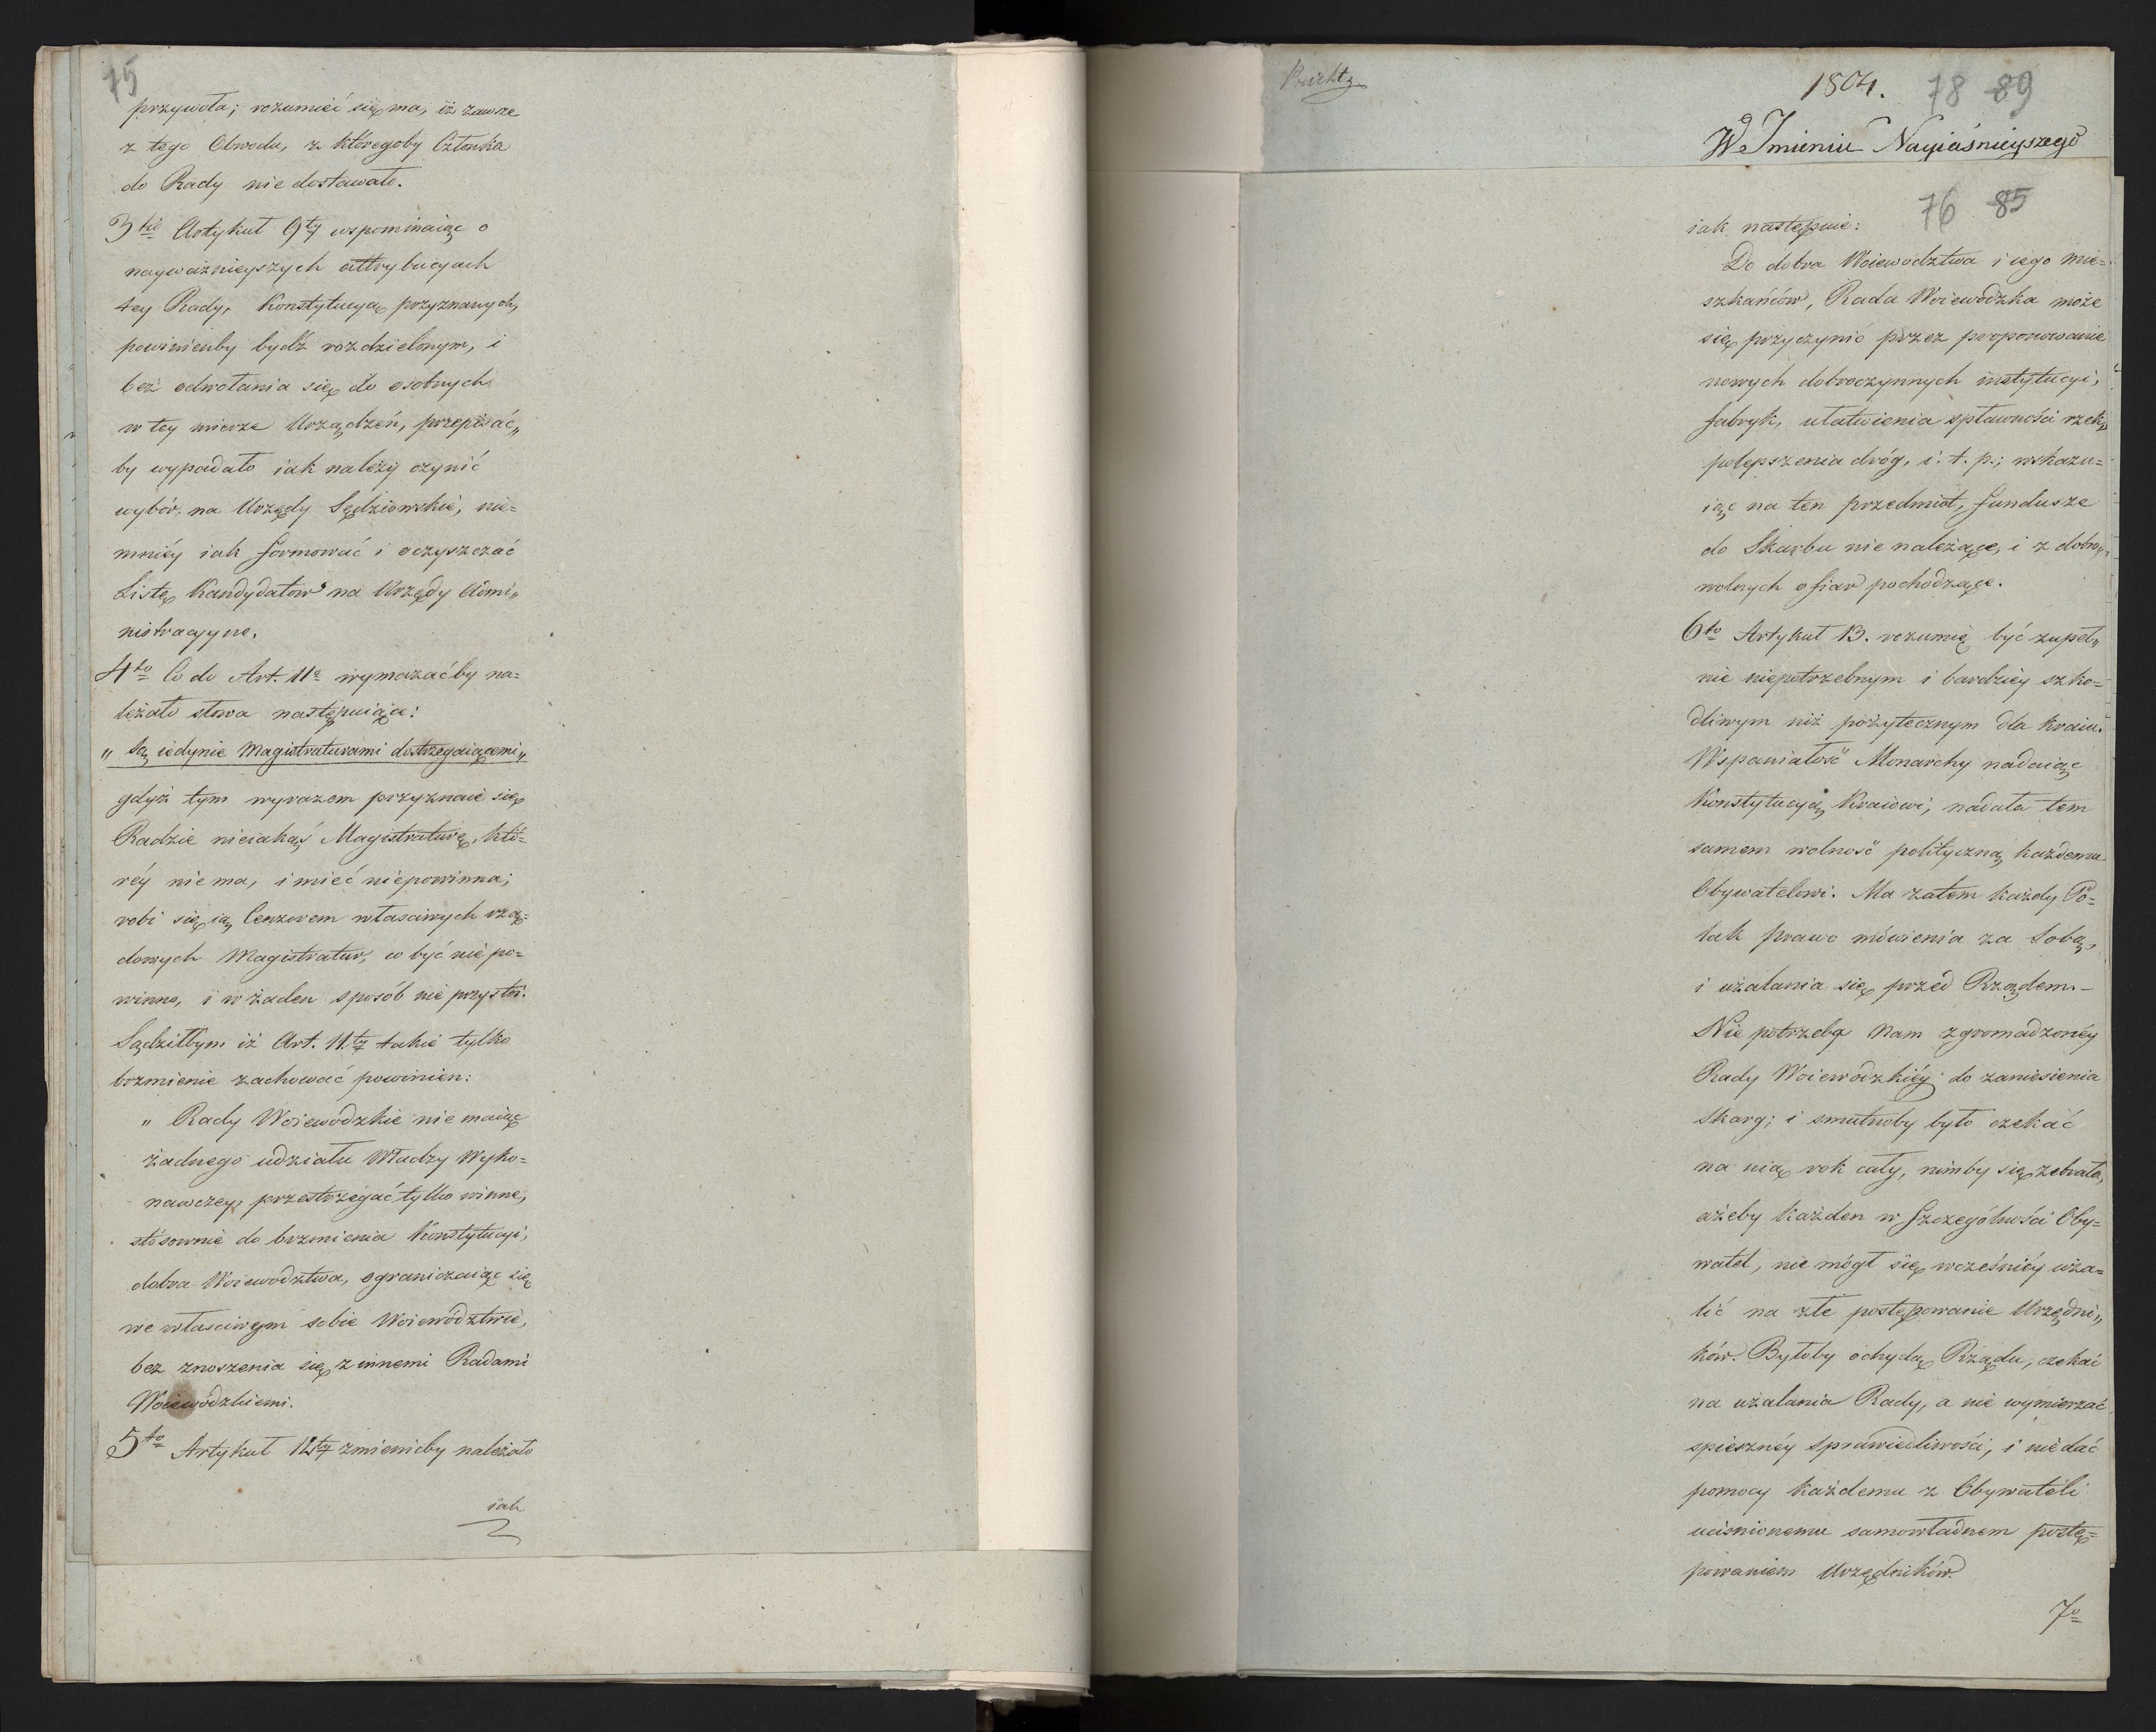 75
przywoła; rozumieć się ma, iż zawsze
z tego Obwodu, z któregoby Członka
do Rady nie dostawało.
3tio Artykuł 9ty wspominaiąc o
nayważnieyszych attrybucyach
tey Rady, Konstytucyą przyznanych,
powinienby bydź rozdzielonym, i
bez odwołania się do osobnych
w tey mierze Urządzeń, przepisać„
by wypadało iak należy czynić
wybór, na Urzędy Sędziowskie, nie=
mniéy iak formować i oczyszczać
Listę Kandydatów na Urzędy Admi„
nistracyyne.
4to Co do Art. 11o wymazaćby na=
leżało słowa następuiące:
„ są iedynie Magistraturami dostrzegaiącemi„
gdyż tym wyrazem przyznaie się
Radzie nieiakąś Magistraturę, któ=
réy nie ma, i mieć niepowinna;
robi się ią Cenzorem właściwych rzą=
dowych Magistratur, co być nie po=
winno, i w żaden sposób nie przystoi.
Sądziłbym iż Art. 11ty takie tylko
brzmienie zachować powinien:
„ Rady Woiewodzkie nie maiąc
żadnego udziału Władzy Wyko=
nawczey, przestrzegać tylko winne,
stósownie do brzmienia Konstytucyi,
dobra Woiewodztwa, ograniczaiąc się
we właściwym sobie Woiewództwie,
bez znoszenia się z innemi Radami
Woiewódzkiemi.
5to Artykuł 12ty zmienićby należało
iak
1804. 78 89
W Imieniu Nayiaśnieyszego
76 85
iak następuie:
Do dobra Woiewodztwa i iego mie=
szkańców, Rada Woiewódzka może
się przyczynić przez proponowanie
nowych dobroczynnych instytucyi,
fabryk, ułatwienia spławności rzek,
polepszenia dróg, i. t. p.; wskazu=
iąc na ten przedmiot, fundusze
do Skarbu nie należące, i z dobro=
wolnych ofiar pochodzące.
6to Artykuł 13. rozumię być zupeł„
nie niepotrzebnym i bardziey szko=
dliwym niż pożytecznym dla Kraiu.
Wspaniałość Monarchy nadaiąc
Konstytucyą Kraiowi, nadała tem
samem wolność polityczną każdemu
Obywatelowi. Ma zatem każdy Po=
lak prawo mówienia za sobą,
i użalania się przed Rządem. –
Nie potrzeba Nam zgromadzonéy
Rady Woiewodzkiéy do zaniesienia
Skarg; i smutnoby było czekać
na nią rok cały, nimby się zebrała,
ażeby każden w szczególności Oby=
watel, nie mógł się wcześniéy uża=
lić na złe postępowanie Urzędni„
ków. Byłoby ochydą Rządu, czekać
na użalania Rady, a nie wymierzać
spiesznéy sprawiedliwości, i nie dać
pomocy każdemu z Obywateli
uciśnionemu samowładnem postę=
powaniem Urzędników.
7o